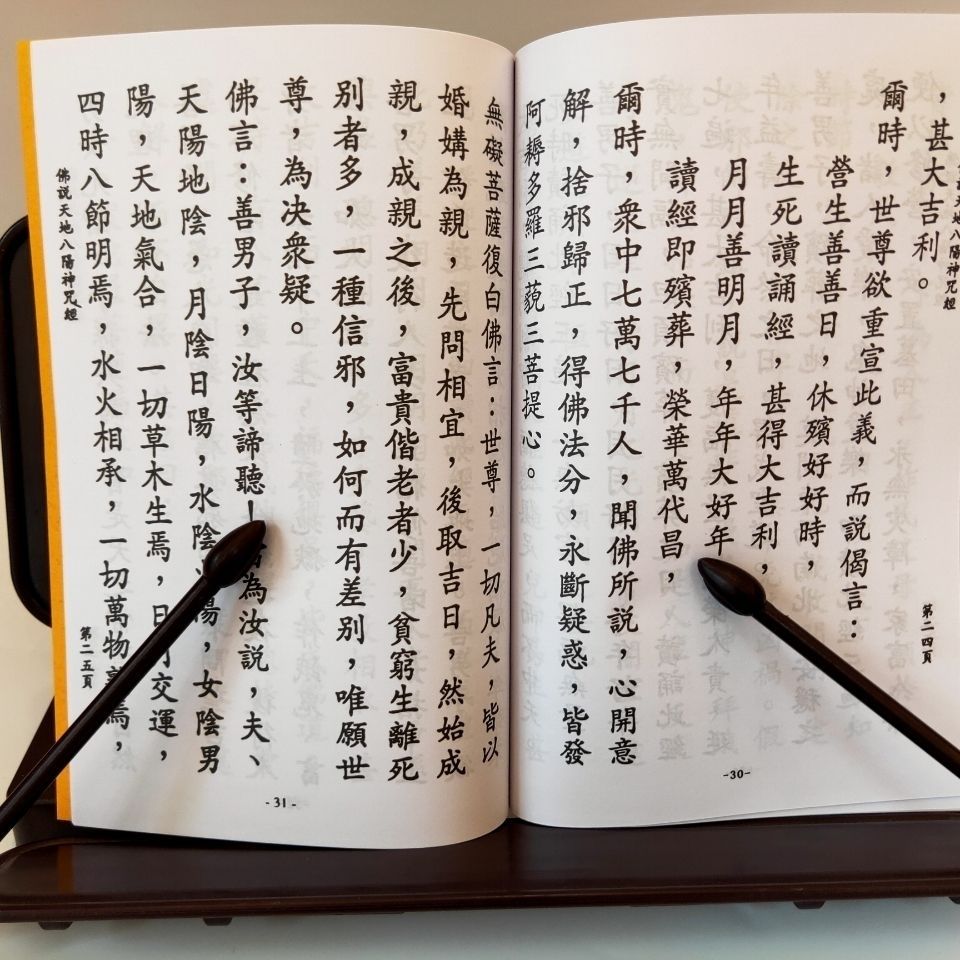 ，甚大吉利。
爾時，世尊欲重宣此義，而說偈言：
營生善善日，休殯好好時，
生死讀誦經，甚得大吉利，
月月善明月，年年大好年，
讀經即殯葬，榮華萬代昌，
爾時，衆中七萬七千人，聞佛所説，心開意
解，捨邪歸正，得佛法分，永斷疑惑，皆發
阿耨多羅三藐三菩提心。
第二四頁
-30-
無礙菩薩復白佛言：世尊，一切凡夫，皆以
婚媾為親，先問相宜，後取吉日，然始成
親，成親之後，富貴偕老者少，貧窮生離死
別者多，一種信邪，如何而有差別，唯願世
尊，為决衆疑。
佛言：善男子，汝等諦聽！為汝説，夫、
天陽地陰，月陰日陽，水陰陽，女陰男
陽，天地氣合，一切草木生焉，日交運，
四時八節明焉，水火相承，一切萬物焉，
佛説天地八陽神咒經
第二五頁
- 31 -